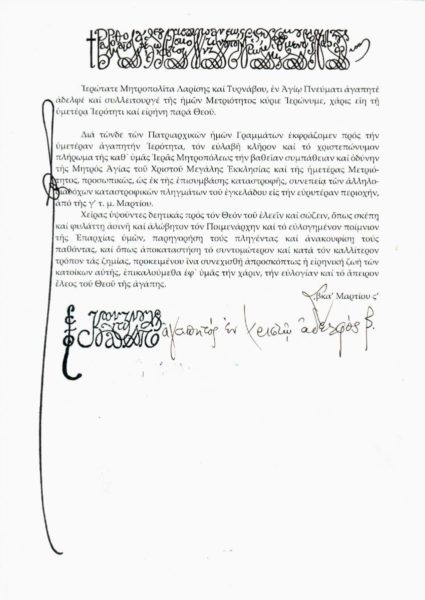 Ἱερώτατε Μητροπολῖτα Λαρίσης καί Τυρνάβου, ἐν Ἁγίῳ Πνεύματι ἀγαπητέ
ἀδελφέ καί συλλειτουργέ τῆς ἡμῶν Μετριότητος κύριε Ἱερώνυμε, χάρις εἴη τῇ
ὑμετέρᾳ Ἱερότητι καί εἰρήνη παρά Θεοῦ.
Διά τῶνδε τῶν Πατριαρχικῶν ἡμῶν Γραμμάτων ἐκφράζομεν πρός τήν
ὑμετέραν ἀγαπητήν Ἱερότητα, τόν εὐλαβῆ κλῆρον καί τό χριστεπώνυμον
πλήρωμα τῆς καθ᾽ ὑμᾶς Ἱερᾶς Μητροπόλεως τήν βαθεῖαν συμπάθειαν καί ὀδύνην
τῆς Μητρός Ἁγίας τοῦ Χριστοῦ Μεγάλης Ἐκκλησίας καί τῆς ἡμετέρας Μετριό-
τητος, προσωπικῶς, ὡς ἐκ τῆς ἐπισυμβάσης καταστροφῆς, συνεπείᾳ τῶν ἀλληλο-
διαδόχων καταστροφικῶν πληγμάτων τοῦ ἐγκελάδου εἰς τήν εὐρυτέραν περιοχήν,
ἀπό τῆς γ´ τ. μ. Μαρτίου.
Χεῖρας ὑψοῦντες δεητικάς πρός τόν Θεόν τοῦ ἐλεεῖν καί σώζειν, ὅπως σκέπῃ
καί φυλάττῃ ἀσινῆ καί ἀλώβητον τόν Ποιμενάρχην καί τό εὐλογημένον ποίμνιον
τῆς Ἐπαρχίας ὑμῶν, παρηγορήσῃ τούς πληγέντας καί ἀνακουφίσῃ τούς
παθόντας, καί ὅπως ἀποκαταστήσῃ τό συντομώτερον καί κατά τόν καλλίτερον
τρόπον τάς ζημίας, προκειμένου ἵνα συνεχισθῇ ἀπροσκόπτως ἡ εἰρηνική ζωή τῶν
κατοίκων αὐτῆς, ἐπικαλούμεθα ἐφ᾽ ὑμᾶς τήν χάριν, τήν εὐλογίαν καί τό ἄπειρον
ἔλεος τοῦ Θεοῦ τῆς ἀγάπης.
͵βκα´ Μαρτίου ς´
ἀγαπητός ἐν Χριστῷ ἀδελφός